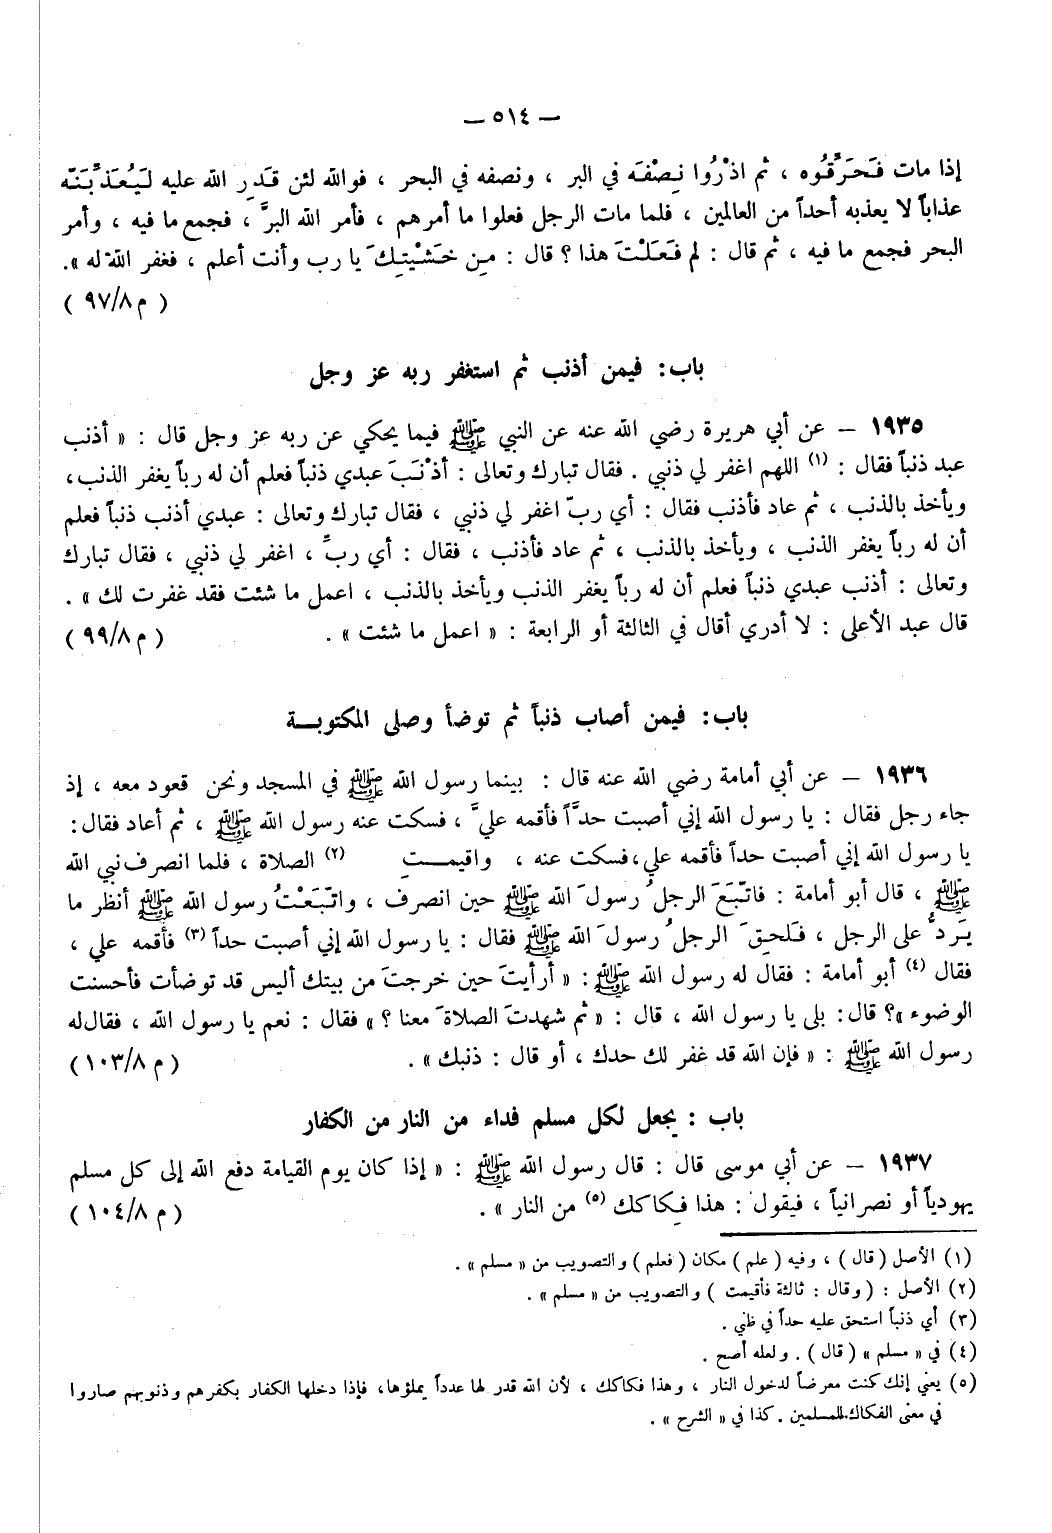 — ٥١٤ —
إذا مات فَحَرِّقُوه ، ثم اذْرُوا نِصْفَه في البر ، ونصفه في البحر ، فوالله لئن قَدَرِ الله عليه لَيُعَذِّبَنَّه
عذاباً لا يعذبه أحداً من العالمين ، فلما مات الرجل فعلوا ما أمرهم ، فأمر الله البرَّ ، فجمع ما فيه ، وأمر
البحر فجمع ما فيه ، ثم قال : لم فَعَلْتَ هذا ؟ قال : مِن خَشْيَتِكَ يا رب وأنت أعلم ، فغفر اللهُ له ».
( م ٩٧/٨ )
باب: فيمن أذنب ثم استغفر ربه عز وجل
١٩٣٥ — عن أبي هريرة رضي الله عنه عن النبي ﷺ فيما يحكي عن ربه عز وجل قال : « أذنب
عبد ذنباً فقال : (١) اللهم اغفر لي ذنبي . فقال تبارك وتعالى : أذْنَبَ عبدي ذنباً فعلم أن له رباً يغفر الذنب،
ويأخذ بالذنب ، ثم عاد فأذنب فقال : أي ربّ اغفر لي ذنبي ، فقال تبارك وتعالى : عبدي أذنب ذنباً فعلم
أن له رباً يغفر الذنب ، ويأخذ بالذنب ، ثم عاد فأذنب ، فقال : أي ربِّ ، اغفر لي ذنبي ، فقال تبارك
وتعالى : أذنب عبدي ذنباً فعلم أن له رباً يغفر الذنب ويأخذ بالذنب ، اعمل ما شئت فقد غفرت لك » .
قال عبد الأعلى : لا أدري أقال في الثالثة أو الرابعة : « اعمل ما شئت » . ( م ٩٩/٨ )
باب: فيمن أصاب ذنباً ثم توضأ وصلى المكتوبـــة
١٩٣٦ — عن أبي أمامة رضي الله عنه قال : بينما رسول الله ﷺ في المسجد ونحن قعود معه ، إذ
جاء رجل فقال : يا رسول الله إني أصبت حدَّاً فأقمه عليَّ ، فسكت عنه رسول الله ﷺ ، ثم أعاد فقال:
يا رسول الله إني أصبت حداً فأقمه علي،فسكت عنه ، واقيمـــتِ (٢) الصلاة ، فلما انصرف نبي الله
ﷺ ، قال أبو أمامة : فاتّبَعَ الرجلُ رسولَ الله ﷺ حين انصرف ، واتّبَعْتُ رسول الله ﷺ أنظر ما
يَردُّ على الرجل ، فَلحِقَ الرجلُ رسولَ الله ﷺ فقال : يا رسول الله إني أصبت حداً (٣) فأقمه علي ،
فقال (٤) أبو أمامة : فقال له رسول الله ﷺ: « أرأيتَ حين خرجتَ من بيتك أليس قد توضأت فأحسنت
الوضوء »؟ قال: بلى يا رسول الله ، قال : « ثم شهدتَ الصلاةَ معنا ؟ » فقال : نعم يا رسول الله ، فقال له
رسول الله ﷺ : « فإن الله قد غفر لك حدك ، أو قال : ذنبك » . ( م ١٠٣/٨ )
باب : يجعل لكل مسلم فداء من النار من الكفار
١٩٣٧ — عن أبي موسى قال : قال رسول الله ﷺ : « إذا كان يوم القيامة دفع الله إلى كل مسلم
يهودياً أو نصرانياً ، فيقول : هذا فِكاكك (٥) من النار » . ( م ١٠٤/٨ )
(١) الأصل ( قال ) ، وفيه ( علم ) مكان ( فعلم ) والتصويب من « مسلم » .
(٢) الأصل : ( وقال : ثالثة فأقيمت ) والتصويب من « مسلم » .
(٣) أي ذنباً استحق عليه حداً في ظني .
(٤) في « مسلم » ( قال ) . ولعله أصح .
(٥) يعني إنك كنت معرضاً لدخول النار ، وهذا فكاكك ، لأن الله قدر لها عدداً يملؤها، فإذا دخلها الكفار بكفرهم وذنوبهم صاروا
في معنى الفكاك للمسلمين . كذا في « الشرح » .